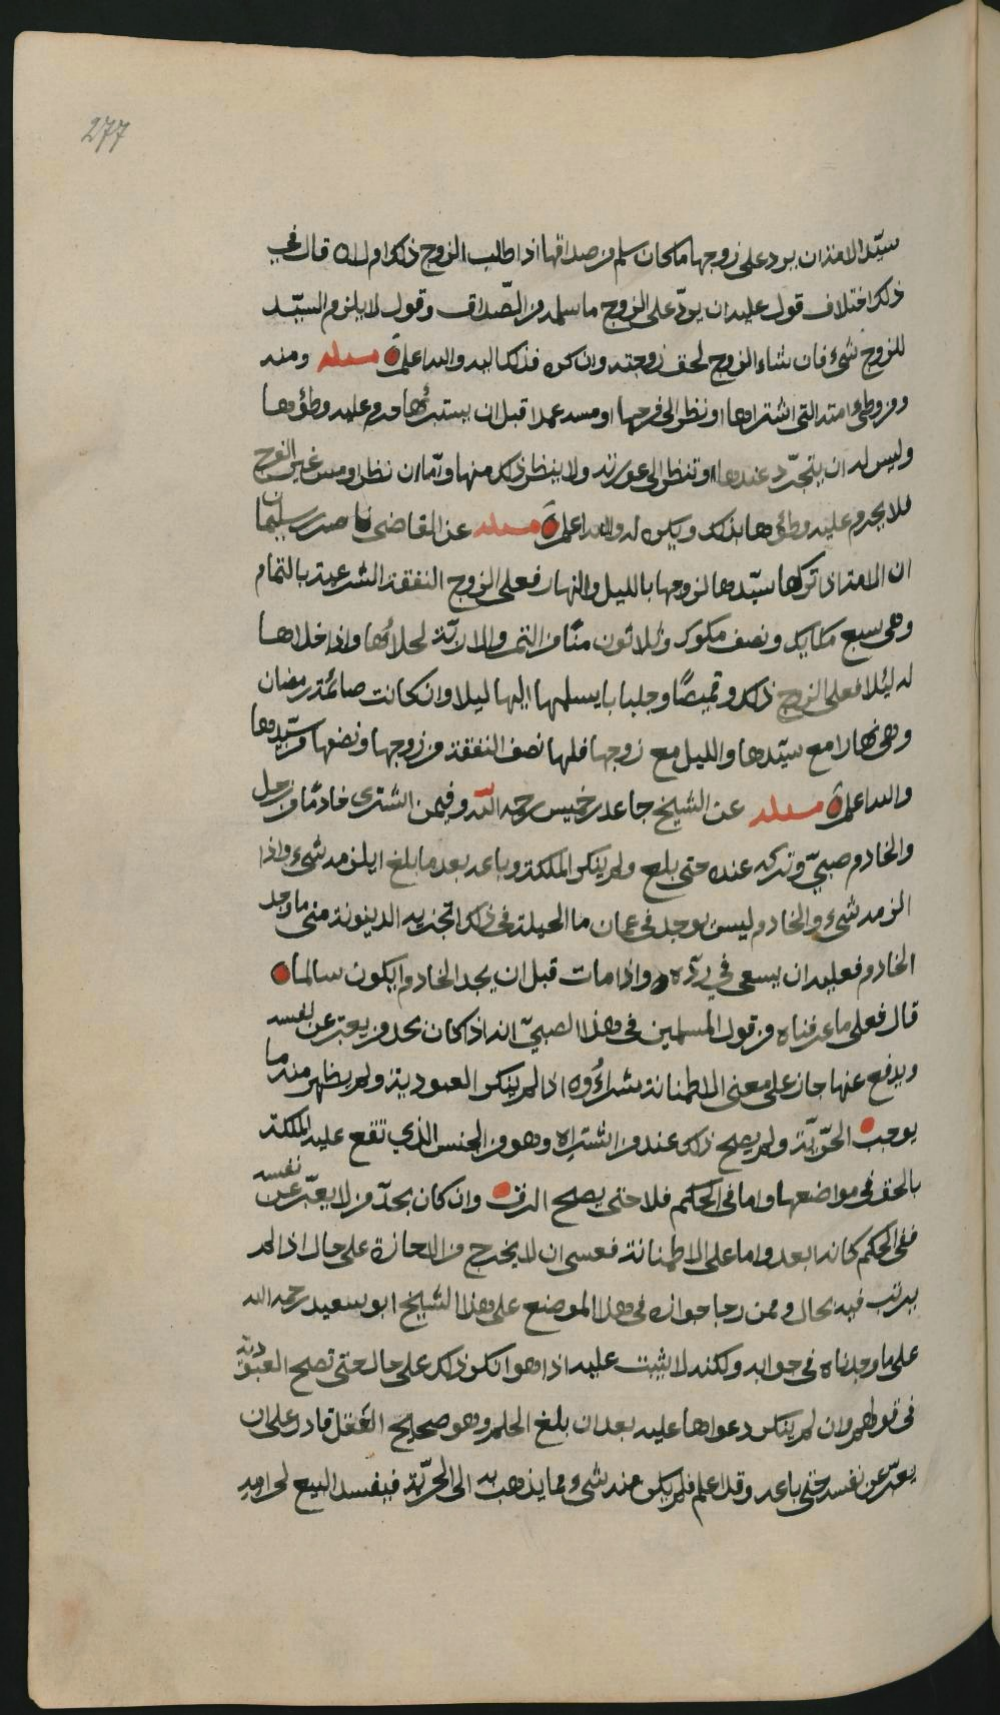 277
سيّد الامة ان يرد على زوجها ما كان سلم من صداقها اذا طالب الزوج ذلك ام لا قال في
ذلك اختلاف قول عليه ان يردّ على الزوج ما سلمه من الصّداق وقول لا يلزم السيّد
للزوج شئ فان شاء الزوج لحق زوجته وان كره فذلك اليه والله اعلم مسئله ومنه
ومن وطئ امته التي اشتراها او نظر الى فرجها او مسه عمدا قبل ان يستبرئها حرم عليه وطؤها
وليس له ان يتجرّد عندها وتنظر الى عورته ولا ينظر ذلك منها وامّا ان نظر او مس غير الفرج
فلا يحرم عليه وطؤها بذلك ويكره له والله اعلم مسئله عن القاضي ناصر بن سليمان
ان الامة اذا تركها سيّدها لزوجها بالليل والنهار فعلى الزوج النفقة الشرعية بالتمام
وهي سبع مكاييك ونصف مكوك وثلاثون منًّا من التمر والارية لحلاؤها واذا خلاها
له ليلا فعلى الزوج ذلك وقميصًا وجلبابا يسلمها اليها ليلا وان كانت صائمة رمضان
وهي نهارا مع سيّدها والليل مع زوجها فلها نصف النفقة من زوجها ونصفها من سيّدها
والله اعلم مسئله عن الشيخ جاعد بن خميس رحمه الله وفيمن اشترى خادمًا من رجل
والخادم صبيّ وتركه عنده حتى بلغ ولم ينكر الملكة وباعه بعد ما بلغ ايلزمه شيء واذا
الزمه شيء والخادم ليس يوجد في عمان ما الحيلة في ذلك اتجزيه الدينونة متى ما وجد
الخادم فعليه ان يسعى في ردّه واذا مات قبل ان يجد الخادم ايكون سالما
قال فعلى ما عرفناه من قول المسلمين في هذا الصبيّ انه اذا كان بحد من يعبّر عن نفسه
ويدفع عنها جاز على معنى الاطمئنانة شراؤه اذا لم ينكر العبودية ولم يظهر منه ما
يوجب الحرّيّة ولم يصح ذلك عند من اشتراه وهو من الجنس الذي تقع عليه الملكة
بالحق في مواضعها واما في الحكم فلا حتى يصح الرق وان كان بحدّ من لا يعبّر عن نفسه
ففي الحكم كانه ابعد واما على الاطمئنانة فعسى ان لا يخرج من الاجازة على حال اذا لم
يرتب فيه بحال وممن رجا جوازه في هذا الموضع على هذا الشيخ ابو سعيد رحمه الله
على ما وجدناه في جوابه ولكنه لا يثبت عليه اذا هو انكر ذلك على حال حتى تصح العبوديّة
في قولهم وان لم ينكر دعواها عليه بعد ان بلغ الحلم وهو صحيح العقل قادر على ان
يعبّر عن نفسه حتى باعه وقد اعلم فلم يكن منه شيء مما يذهب به الى الحرّيّة فيفسد البيع